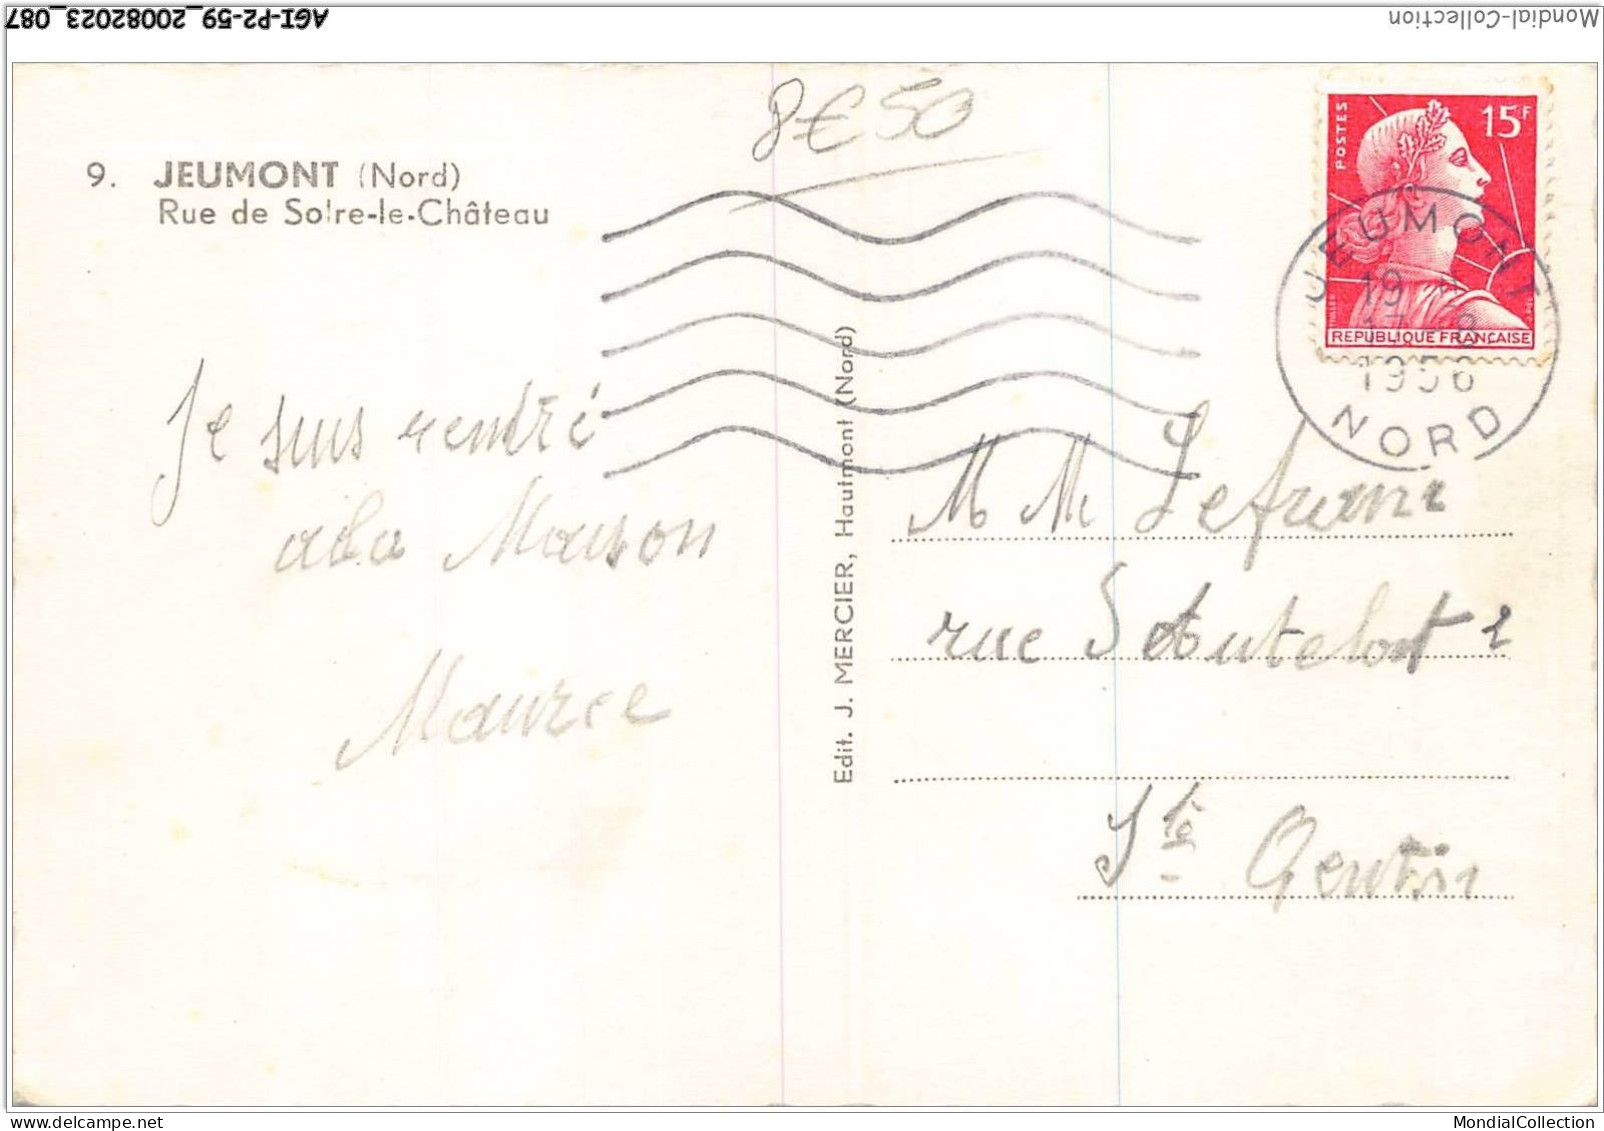 AGI-P2-59_20082023_087
Mondial-Collection
8€50
9. JEUMONT (Nord)
Rue de Solre-le-Château
POSTES
15F
REPUBLIQUE FRANCAISE
JEUMONT
19
17
1956
NORD
Je suis rentré
a la Maison
Maurice
Edit. J. MERCIER, Hautmont (Nord)
M M
rue
St Gentin
MondialCollection
www.delcampe.net